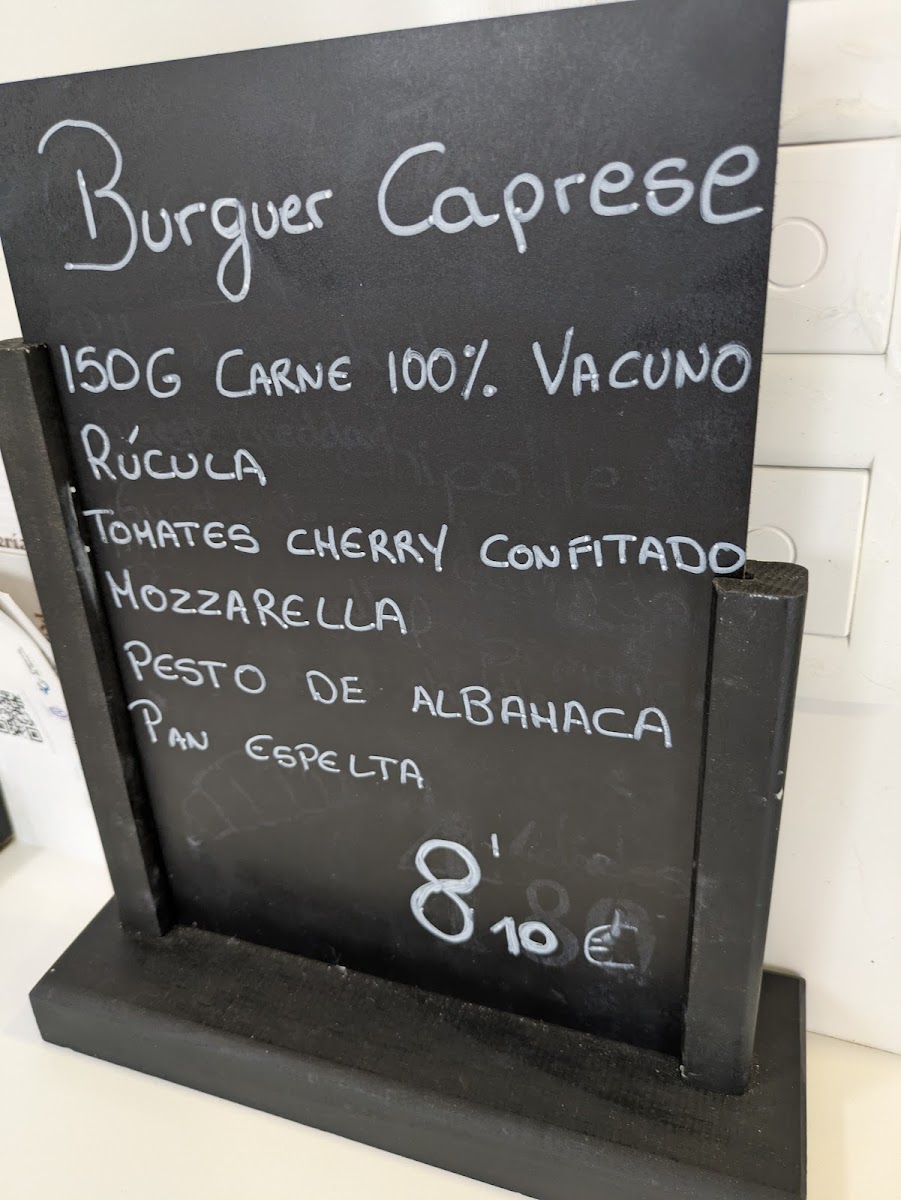 Burguer Caprese
150G CARNE 100% VACUNO
RÚCULA
TOMATES CHERRY CONFITADO
MOZZARELLA
PESTO DE ALBAHACA
PAN ESPELTA
8'10 €